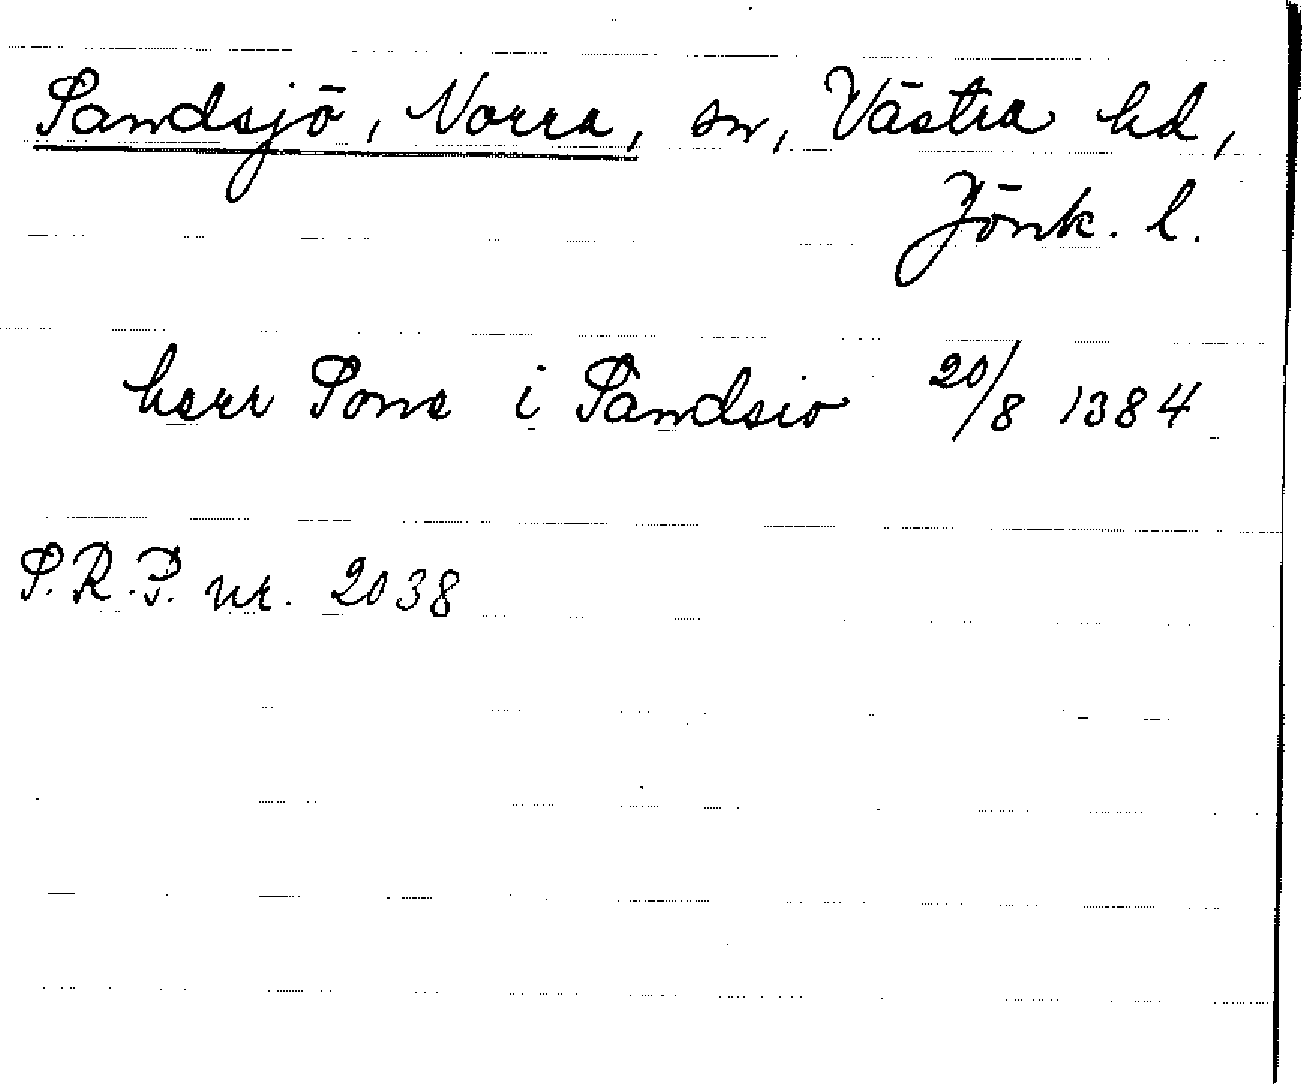 Sandsjö, Norra, sn, Västra hd,
Jönk. l.
herr Sone i Sandsio 20/8 1384
S.R.P. nr. 2038